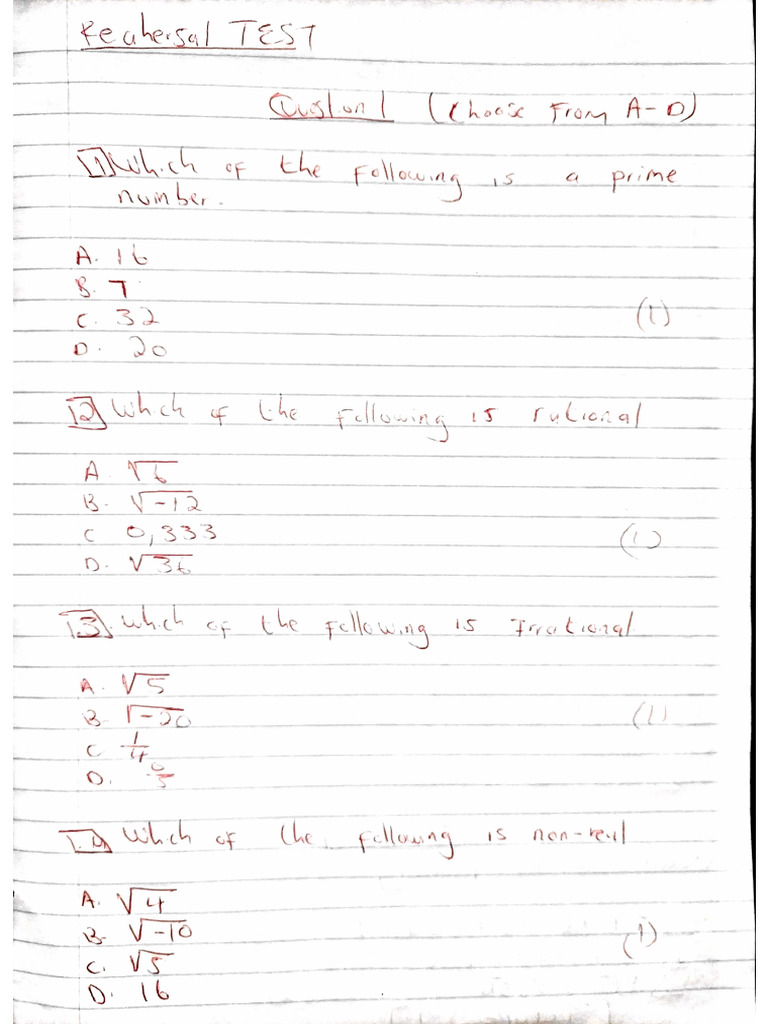 Reahersal TEST
Question 1 (Choose From A-D)
1.1 Which of the following is a prime
number.
A. 16
B. 7
C. 32 (1)
D. 20
1.2 Which of the following is rational
A √6
B. √-12
C 0,333 (1)
D. √36
1.3 Which of the following is Irrational
A. √5
B. √-20 (1)
C 1/4
D. 0/5
1.4 Which of the following is non-real
A. √4
B. √-10 (1)
C. √5
D. 16